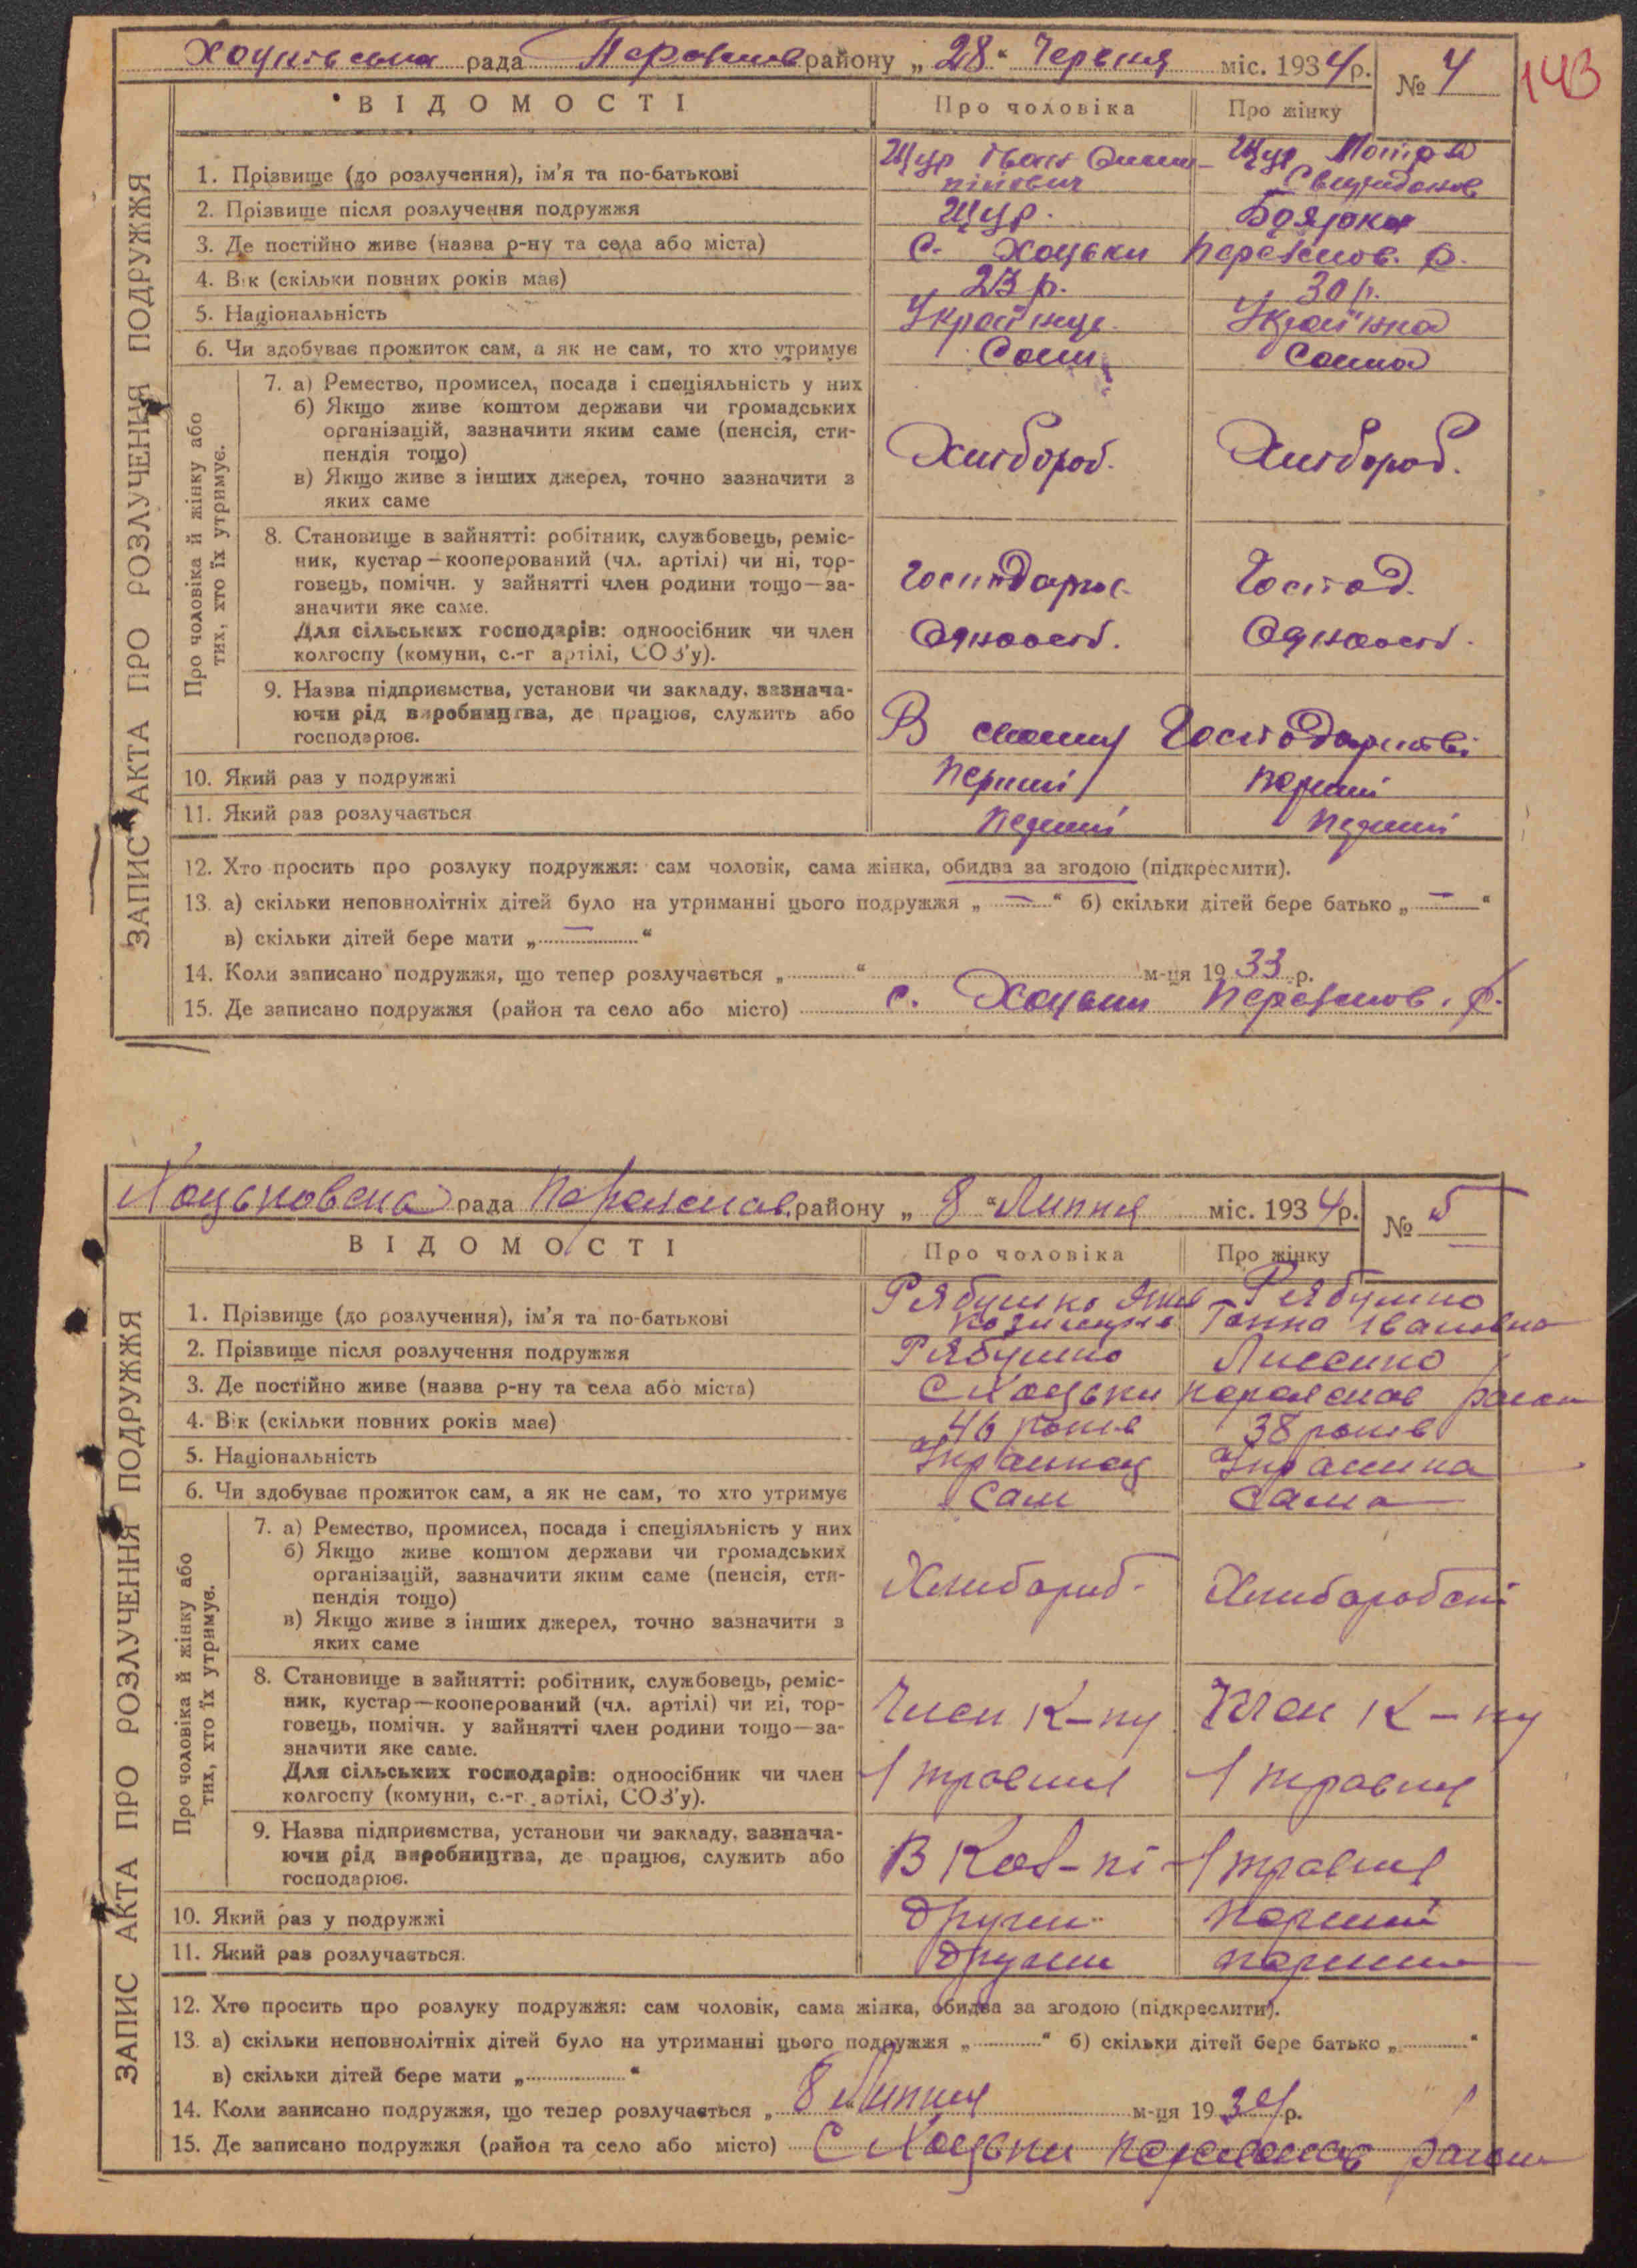 Хоцківська рада Переяслав району „ 28 “ Червня міс. 1934 р.
№ 4
143
ВІДОМОСТІ Про чоловіка Про жінку
ЗАПИС АКТА ПРО РОЗЛУЧЕННЯ ПОДРУЖЖЯ
1. Прізвище (до розлучення), ім'я та по-батькові Щур Іван Щур Мотря
2. Прізвище після розлучення подружжя Щур. Боярка
3. Де постійно живе (назва р-ну та села або міста) с. Хоцьки Переяслов. р.
4. Вік (скільки повних років має) 23 р. 30 р.
5. Національність Українец. Українка
6. Чи здобуває прожиток сам, а як не сам, то хто утримує Сам Сама
Про чоловіка й жінку або тих, хто їх утримує.
7. а) Ремество, промисел, посада і спеціяльність у них
б) Якщо живе коштом держави чи громадських
організацій, зазначити яким саме (пенсія, сти-
пендія тощо) Хлібороб. Хлібороб.
в) Якщо живе з інших джерел, точно зазначити з
яких саме
8. Становище в зайнятті: робітник, службовець, реміс-
ник, кустар—кооперований (чл. артілі) чи ні, тор-
говець, помічн. у зайнятті член родини тощо—за- Господ.
значити яке саме.
Для сільських господарів: одноосібник чи член Одноосіб. Одноосіб.
колгоспу (комуни, с.-г артілі, СОЗ'у).
9. Назва підприємства, установи чи закладу, зазнача-
ючи рід виробництва, де працює, служить або В своєму Господарстві
господарює.
10. Який раз у подружжі Перший Перший
11. Який раз розлучається Перший Перший
12. Хто просить про розлуку подружжя: сам чоловік, сама жінка, обидва за згодою (підкреслити).
13. а) скільки неповнолітніх дітей було на утриманні цього подружжя „ — “ б) скільки дітей бере батько „ — “
в) скільки дітей бере мати „ — “
14. Коли записано подружжя, що тепер розлучається „ “ м-ця 1933 р.
15. Де записано подружжя (район та село або місто) с. Хоцьки Переяслов. р.
Хоцьковська рада Переяслав. району „ 8 “ Липня міс. 1934 р.
№ 5
ВІДОМОСТІ Про чоловіка Про жінку
ЗАПИС АКТА ПРО РОЗЛУЧЕННЯ ПОДРУЖЖЯ
1. Прізвище (до розлучення), ім'я та по-батькові Рябушко Рябушко
Ганна Івановна
2. Прізвище після розлучення подружжя Рябушко Лисенко
3. Де постійно живе (назва р-ну та села або міста) С Хоцьки Пореяслав район
4. Вік (скільки повних років має) 46 років 38 років
5. Національність Украинец Украинка
6. Чи здобуває прожиток сам, а як не сам, то хто утримує Сам Сама
Про чоловіка й жінку або тих, хто їх утримує.
7. а) Ремество, промисел, посада і спеціяльність у них
б) Якщо живе коштом держави чи громадських
організацій, зазначити яким саме (пенсія, сти-
пендія тощо) Хлибороб.
в) Якщо живе з інших джерел, точно зазначити з
яких саме
8. Становище в зайнятті: робітник, службовець, реміс-
ник, кустар—кооперований (чл. артілі) чи ні, тор- Член К-пу Член К-пу
говець, помічн. у зайнятті член родини тощо—за-
значити яке саме.
Для сільських господарів: одноосібник чи член 1 травня 1 травня
колгоспу (комуни, с.-г. артілі, СОЗ'у).
9. Назва підприємства, установи чи закладу, зазнача-
ючи рід виробництва, де працює, служить або В Кол-пі 1 травня
господарює.
10. Який раз у подружжі Други Перший
11. Який раз розлучається. Други
12. Хто просить про розлуку подружжя: сам чоловік, сама жінка, обидва за згодою (підкреслити).
13. а) скільки неповнолітніх дітей було на утриманні цього подружжя „ “ б) скільки дітей бере батько „ “
в) скільки дітей бере мати „ “
14. Коли записано подружжя, що тепер розлучається „ 8 “ Липня м-ця 1934 р.
15. Де записано подружжя (район та село або місто) С Хоцьки Переяслав район